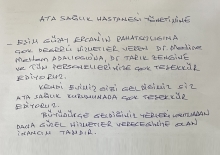 ATA SAĞLIK HASTANESİ YÖNETİMİNE
- EŞİM GÜZAY ERCANIN RAHATSIZLIĞINDA
ÇOK DEĞERLİ HİZMETLER VEREN Dr.
Meltem ADALIOĞLUNA, Dr. TARIK ZENGİNE
VE TÜM PERSONELLERİNİZE ÇOK TEŞEKKÜR
EDİYORUZ.
KENDİ EVİMİZ GİBİ GELDİĞİMİZ SİZ
ATA SAĞLIK KURUMUNADA ÇOK TEŞEKKÜR
EDİYORUZ.
GELDİĞİNİZ
DAHA GÜZEL HİZMETLER VERECEĞİNİZE OLAN
İNANCIM TAMDIR.